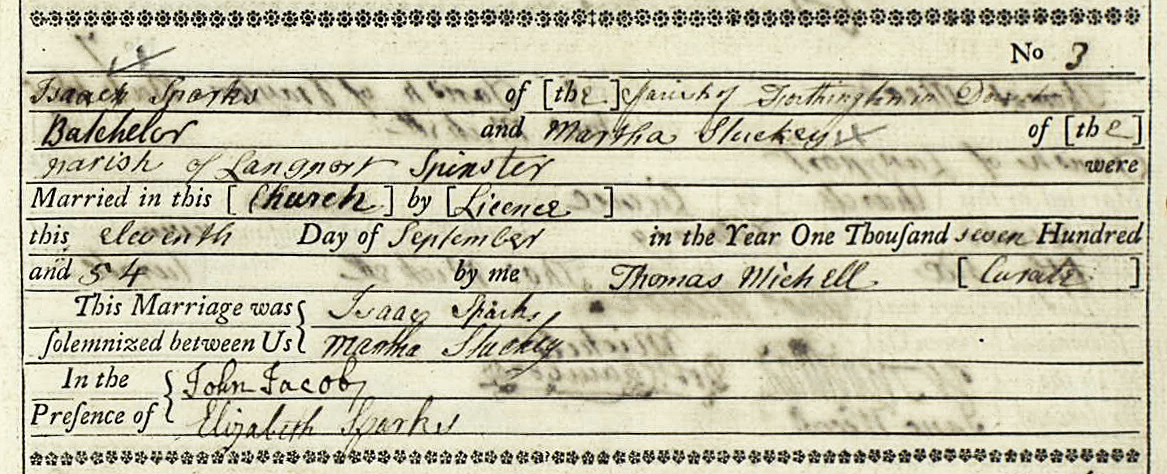 No 3
Isaack Sparks of [the] Parish of Forthington in Dorset
Batchelor and Martha Stuckey of [the]
parish of Langport Spinster were
Married in this [Church] by [Licence]
this eleventh Day of September in the Year One Thouſand seven Hundred
and 54 by me Thomas Michell [Curate]
This Marriage was { Isaac Sparks
ſolemnized between Us { Martha Stuckey
In the { John Jacob
Preſence of { Elizabeth Sparks